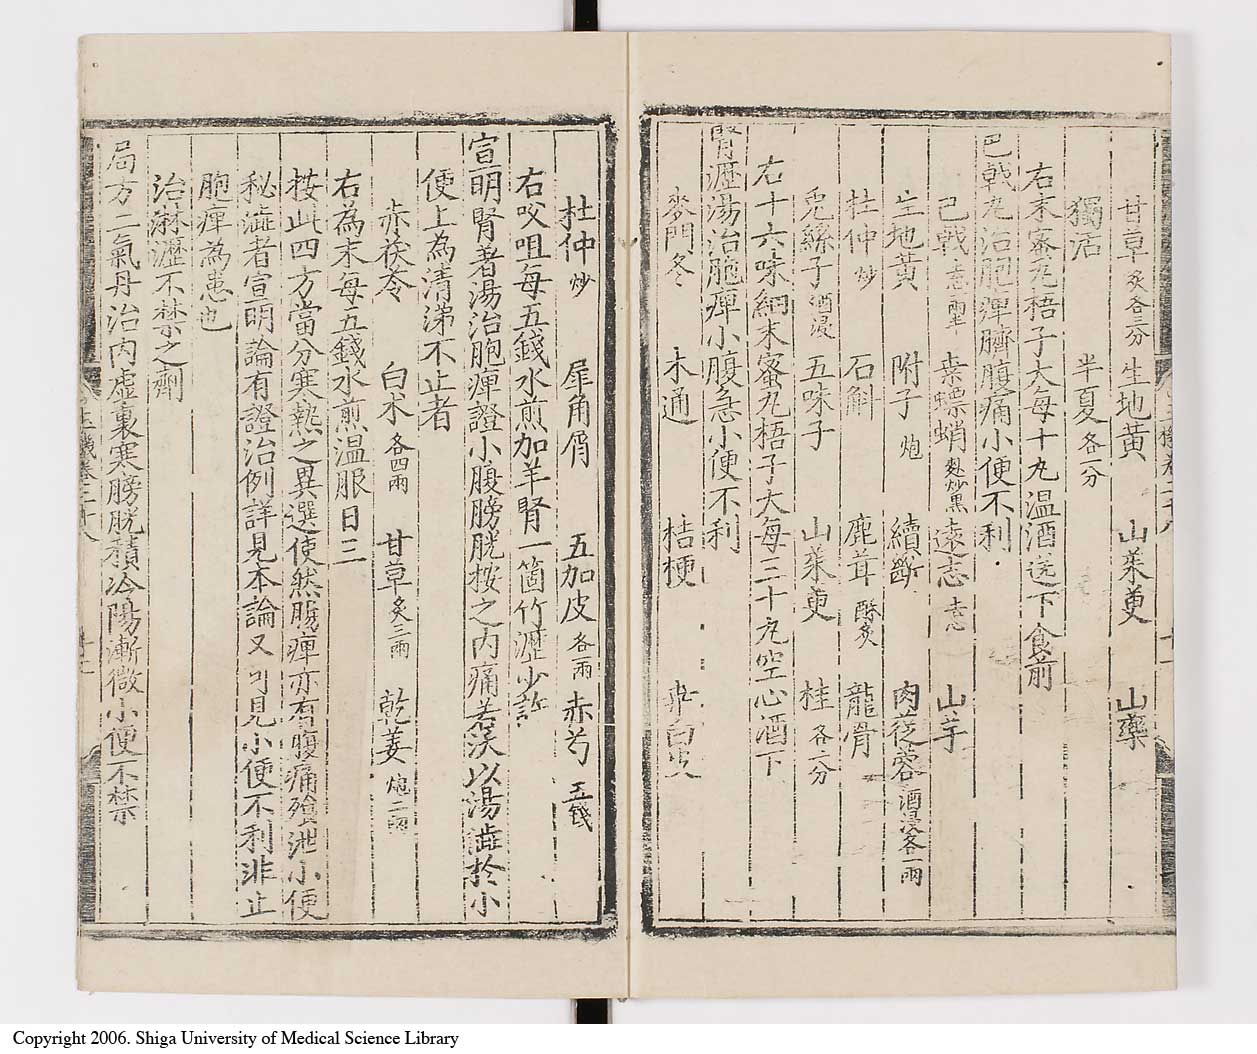 甘草炙各三分 生地黃 山茱萸 山藥
獨活 半夏各一分
右末蜜丸梧子大每十丸温酒送下食前
巴戟丸治胞痺臍腹痛小便不利
巴戟去心兩半 桑螵蛸麩炒黑 遠志去心 山芋
生地黃 附子炮 續斷 肉蓯蓉酒浸各一兩
杜仲炒 石斛 鹿茸酥炙 龍骨
兎絲子酒浸 五味子 山茱萸 桂各三分
右十六味細末蜜丸梧子大每三十丸空心酒下
腎瀝湯治胞痺小腹急小便不利
麥門冬 木通 桔梗 桑白皮
杜仲炒 犀角屑 五加皮各一兩 赤芍五錢
右㕮咀每五錢水煎加羊腎一箇竹瀝少許
宣明腎著湯治胞痺證小腹膀胱按之内痛若沃以湯澁於小
便上為清涕不止者
赤茯苓 白朮各四兩 甘草炙三兩 乾姜炮二兩
右為末每五錢水煎温服日三
按此四方當分寒熱之異選使然腸痺亦有腹痛飱泄小便
秘澁者宣明論有證治例詳見本論又可見小便不利非止
胞痺為患也
治淋瀝不禁之劑
局方二氣丹治内虛裏寒膀胱積冷陽漸微小便不禁